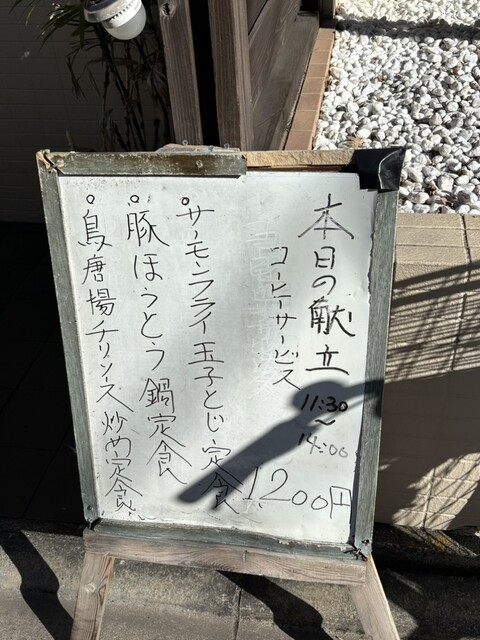 本日の献立
11:30
〜
14:00
コーヒーサービス
1,200円
○サーモンフライ玉子とじ定食
○豚ほうとう鍋定食
○鳥唐揚チリソース炒め定食